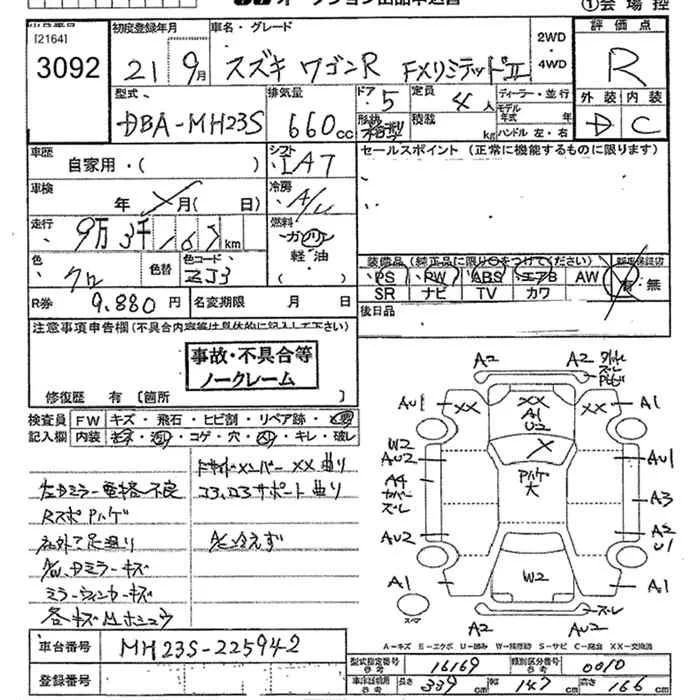 ①会場控
出品番号
[2164]
3092
初度登録年月
21 9月
車名・グレード
スズキ ワゴンR FXリミテッドⅡ
2WD
4WD
評価点
R
型式
DBA-MH23S
排気量
660cc
ドア 5
形状 箱型
定員 4人
積載 kg
ディーラー・並行
モデル年式 年
ハンドル 左・右
外装 内装
D C
車歴
自家用・( )
シフト
IA7
セールスポイント (正常に機能するものに限ります)
車検
年 月( 日)
冷房
A/C
走行
9万3千167km
燃料
ガソリン
軽・油
( )
色
クロ
色替
色コード
ZJ3
装備品 (純正品に限り○をつけてください)
PS PW ABS エアB AW
SR ナビ TV カワ
新車保証書
有 無
R券
9.880円
名変期限 月 日
後日品
注意事項申告欄(不具合内容等は具体的に記入して下さい)
事故・不具合等
ノークレーム
修復歴 有 [箇所 ]
検査員
記入欄
FW キズ・飛石・ヒビ割・リペア跡・
内装 コゲ・穴・ ・キレ・破レ
左Dミラー電格不良
RスポPハゲ
A/C、Dミラーキズ
ミラーウィンカーキズ
コア、ロアサポート曲り
A/C冷えず
A2 A2
AU1 XX XX A1
XX
A1
U2
W2
AU2
AU1
Pハゲ
大
A4
カバー
ズレ
A3
AU2
A2
U1
A1 W2 A1
スペア
ズレ
A2 AU2
A-キズ E-エクボ U-凹み W-補修跡 S-サビ C-腐食 XX-交換済
車台番号
MH23S-225942
登録番号
型式指定番号
参考
16169
類別区分番号
参考
0010
車検証記載
参考
長さ 339cm
幅 147cm
高さ 166cm